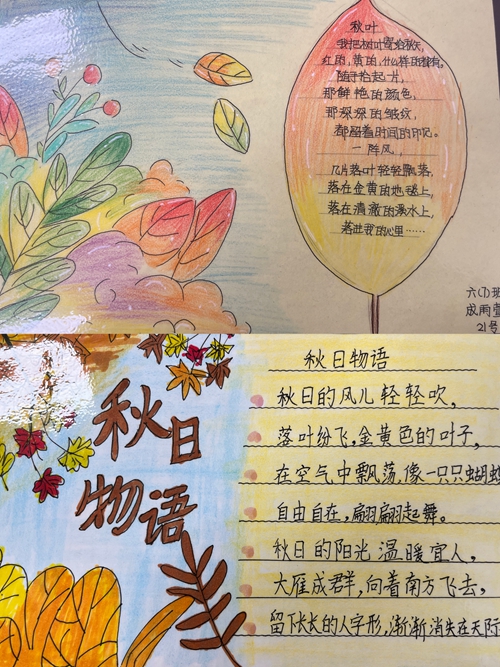 秋叶
我把树叶寄给秋天,
红的,黄的,什么样的都有。
随手拾起一片,
那鲜艳的颜色,
那深深的皱纹,
都留着时间的印记。
一阵风,
几片落叶轻轻飘落,
落在金黄的地毯上,
落在清澈的溪水上,
落进我的心里……
六(1)班
成雨萱
21号
秋日
物语
秋日物语
秋日的风儿轻轻吹,
落叶纷飞,金黄色的叶子,
在空气中飘荡,像一只只蝴蝶
自由自在,翩翩起舞。
秋日的阳光温暖宜人,
大雁成群,向着南方飞去,
留下长长的人字形,渐渐消失在天际